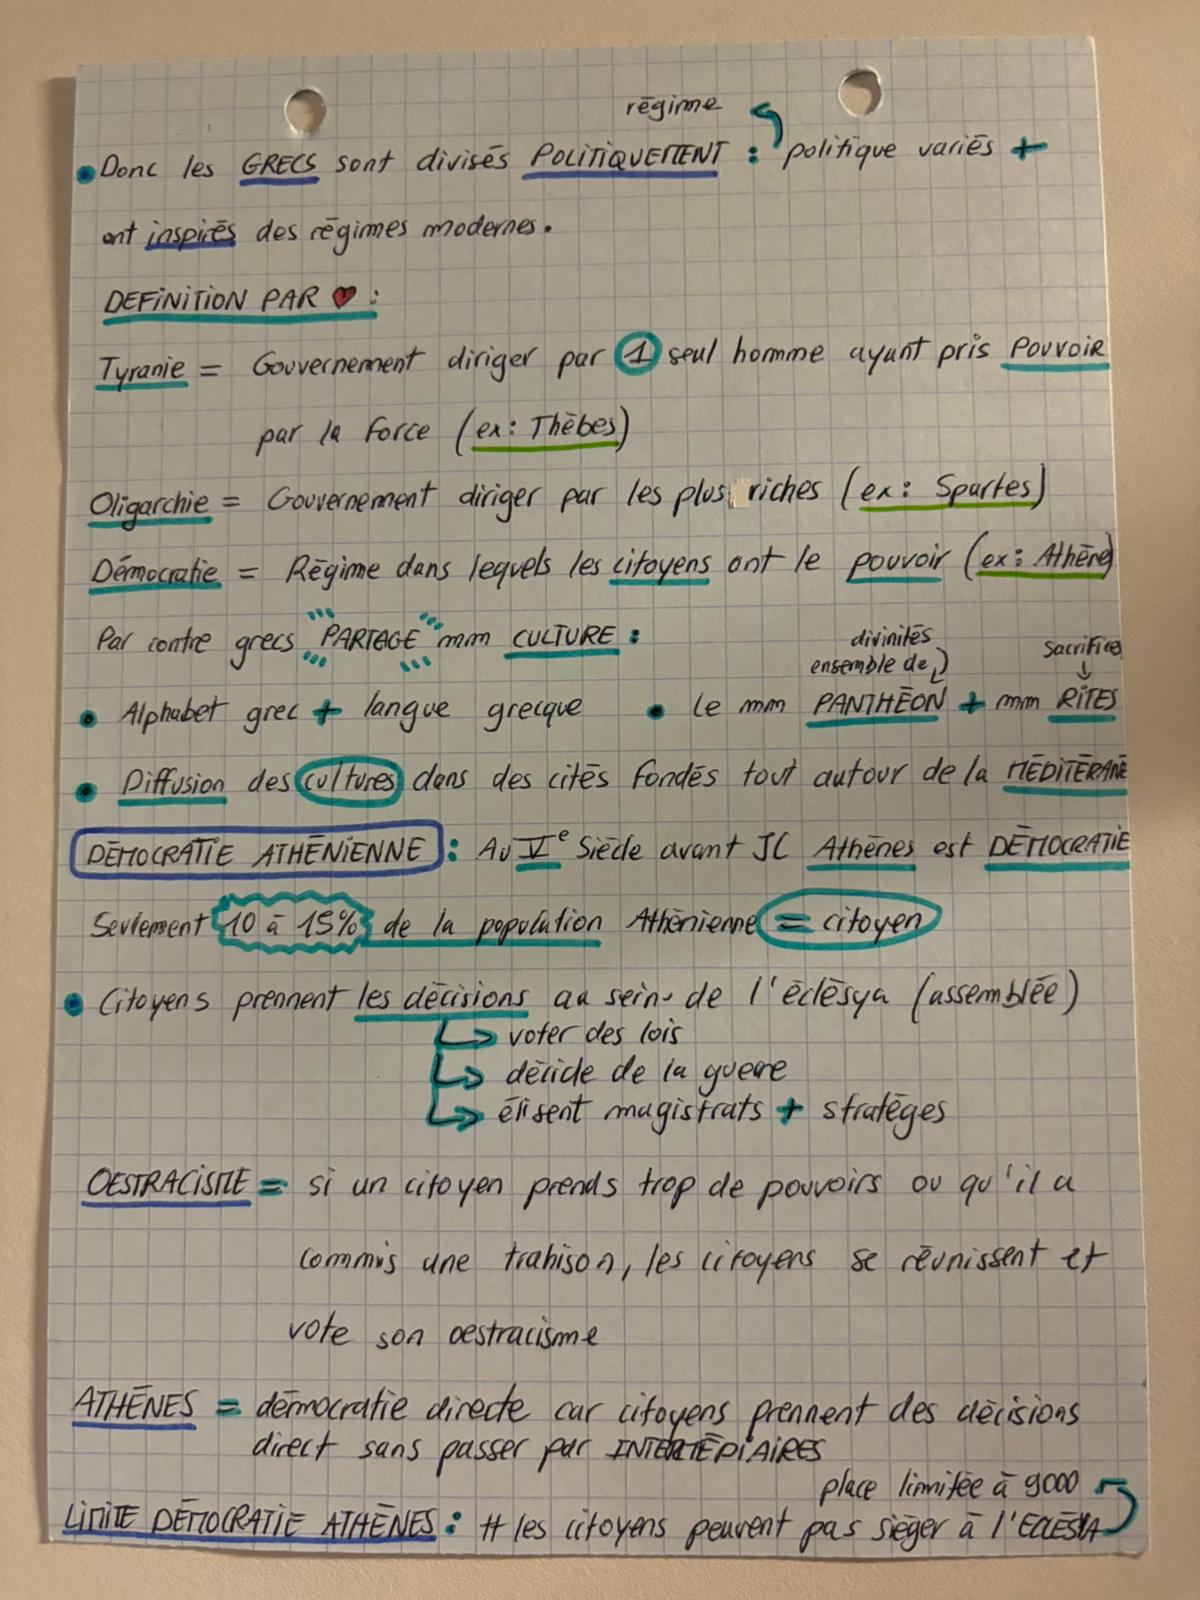 régime
• Donc les GRECS sont divisés POLITIQUEMENT : politique variés +
ont inspirés des régimes modernes.
DEFINITION PAR ♥ :
Tyranie = Gouvernement diriger par 1 seul homme ayant pris POUVOIR
par la force (ex: Thèbes)
Oligarchie = Gouvernement diriger par les plus riches (ex: Spartes)
Démocratie = Régime dans lequels les citoyens ont le pouvoir (ex: Athène)
Par contre grecs PARTAGE mm CULTURE :
divinités
ensemble de
Sacrifices
• Alphabet grec + langue grecque • Le mm PANTHÉON + mm RITES
• Diffusion des cultures dans des cités fondés tout autour de la MÉDITÉRANE
DÉMOCRATIE ATHÉNIENNE : Au Ve Siècle avant JC Athènes est DÉMOCRATIE
Seulement 10 à 15% de la population Athénienne = citoyen
• Citoyens prennent les décisions au sein de l'éclésya (assemblée)
→ voter des lois
→ décide de la guerre
→ élisent magistrats + stratèges
OESTRACISME = si un citoyen prends trop de pouvoirs ou qu'il a
commis une trahison, les citoyens se réunissent et
vote son oestracisme
ATHÈNES = démocratie directe car citoyens prennent des décisions
direct sans passer par INTERMÉDIAIRES
place limitée à 9000
LIMITE DÉMOCRATIE ATHÈNES : # les citoyens peuvent pas siéger à l'ECLÉSIA